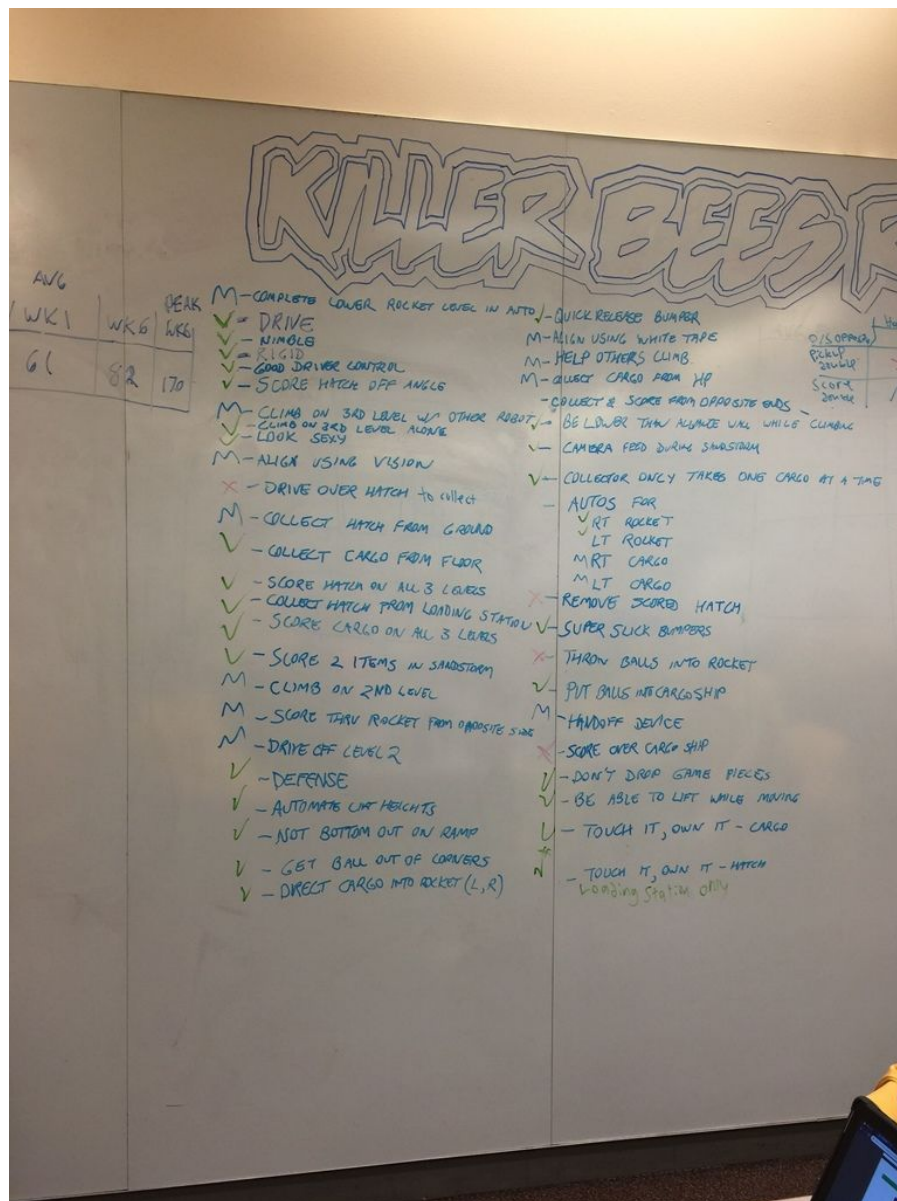 KILLER BEES R
AVG
WK1 WK6 PEAK WK6
61 82 170
M - COMPLETE LOWER ROCKET LEVEL IN AUTO
✓ - DRIVE
✓ - NIMBLE
✓ - RIGID
✓ - GOOD DRIVER CONTROL
✓ - SCORE HATCH OFF ANGLE
M - CLIMB ON 3RD LEVEL W/ OTHER ROBOT
✓ - CLIMB ON 3RD LEVEL ALONE
✓ - LOOK SEXY
M - ALIGN USING VISION
X - DRIVE OVER HATCH to collect
M - COLLECT HATCH FROM GROUND
✓ - COLLECT CARGO FROM FLOOR
✓ - SCORE HATCH ON ALL 3 LEVELS
✓ - COLLECT HATCH FROM LOADING STATION
✓ - SCORE CARGO ON ALL 3 LEVELS
✓ - SCORE 2 ITEMS IN SANDSTORM
M - CLIMB ON 2ND LEVEL
M - SCORE THRU ROCKET FROM OPPOSITE SIDE
M - DRIVE OFF LEVEL 2
✓ - DEFENSE
✓ - AUTOMATE LIFT HEIGHTS
✓ - NOT BOTTOM OUT ON RAMP
✓ - GET BALL OUT OF CORNERS
✓ - DIRECT CARGO INTO ROCKET (L, R)
✓ - QUICK RELEASE BUMPER
M - ALIGN USING WHITE TAPE
M - HELP OTHERS CLIMB
M - COLLECT CARGO FROM HP
- COLLECT & SCORE FROM OPPOSITE ENDS
✓ - BE LOWER THAN ALLIANCE WALL WHILE CLIMBING
✓ - CAMERA FEED DURING SANDSTORM
✓ - COLLECTOR ONLY TAKES ONE CARGO AT A TIME
- AUTOS FOR
✓ RT ROCKET
LT ROCKET
M RT CARGO
M LT CARGO
X - REMOVE SCORED HATCH
✓ - SUPER SLICK BUMPERS
X - THROW BALLS INTO ROCKET
✓ - PUT BALLS INTO CARGO SHIP
M - HANDOFF DEVICE
X - SCORE OVER CARGO SHIP
✓ - DON'T DROP GAME PIECES
✓ - BE ABLE TO LIFT WHILE MOVING
✓ - TOUCH IT, OWN IT - CARGO
✓* - TOUCH IT, OWN IT - HATCH
Loading Station only
Pickup
Score